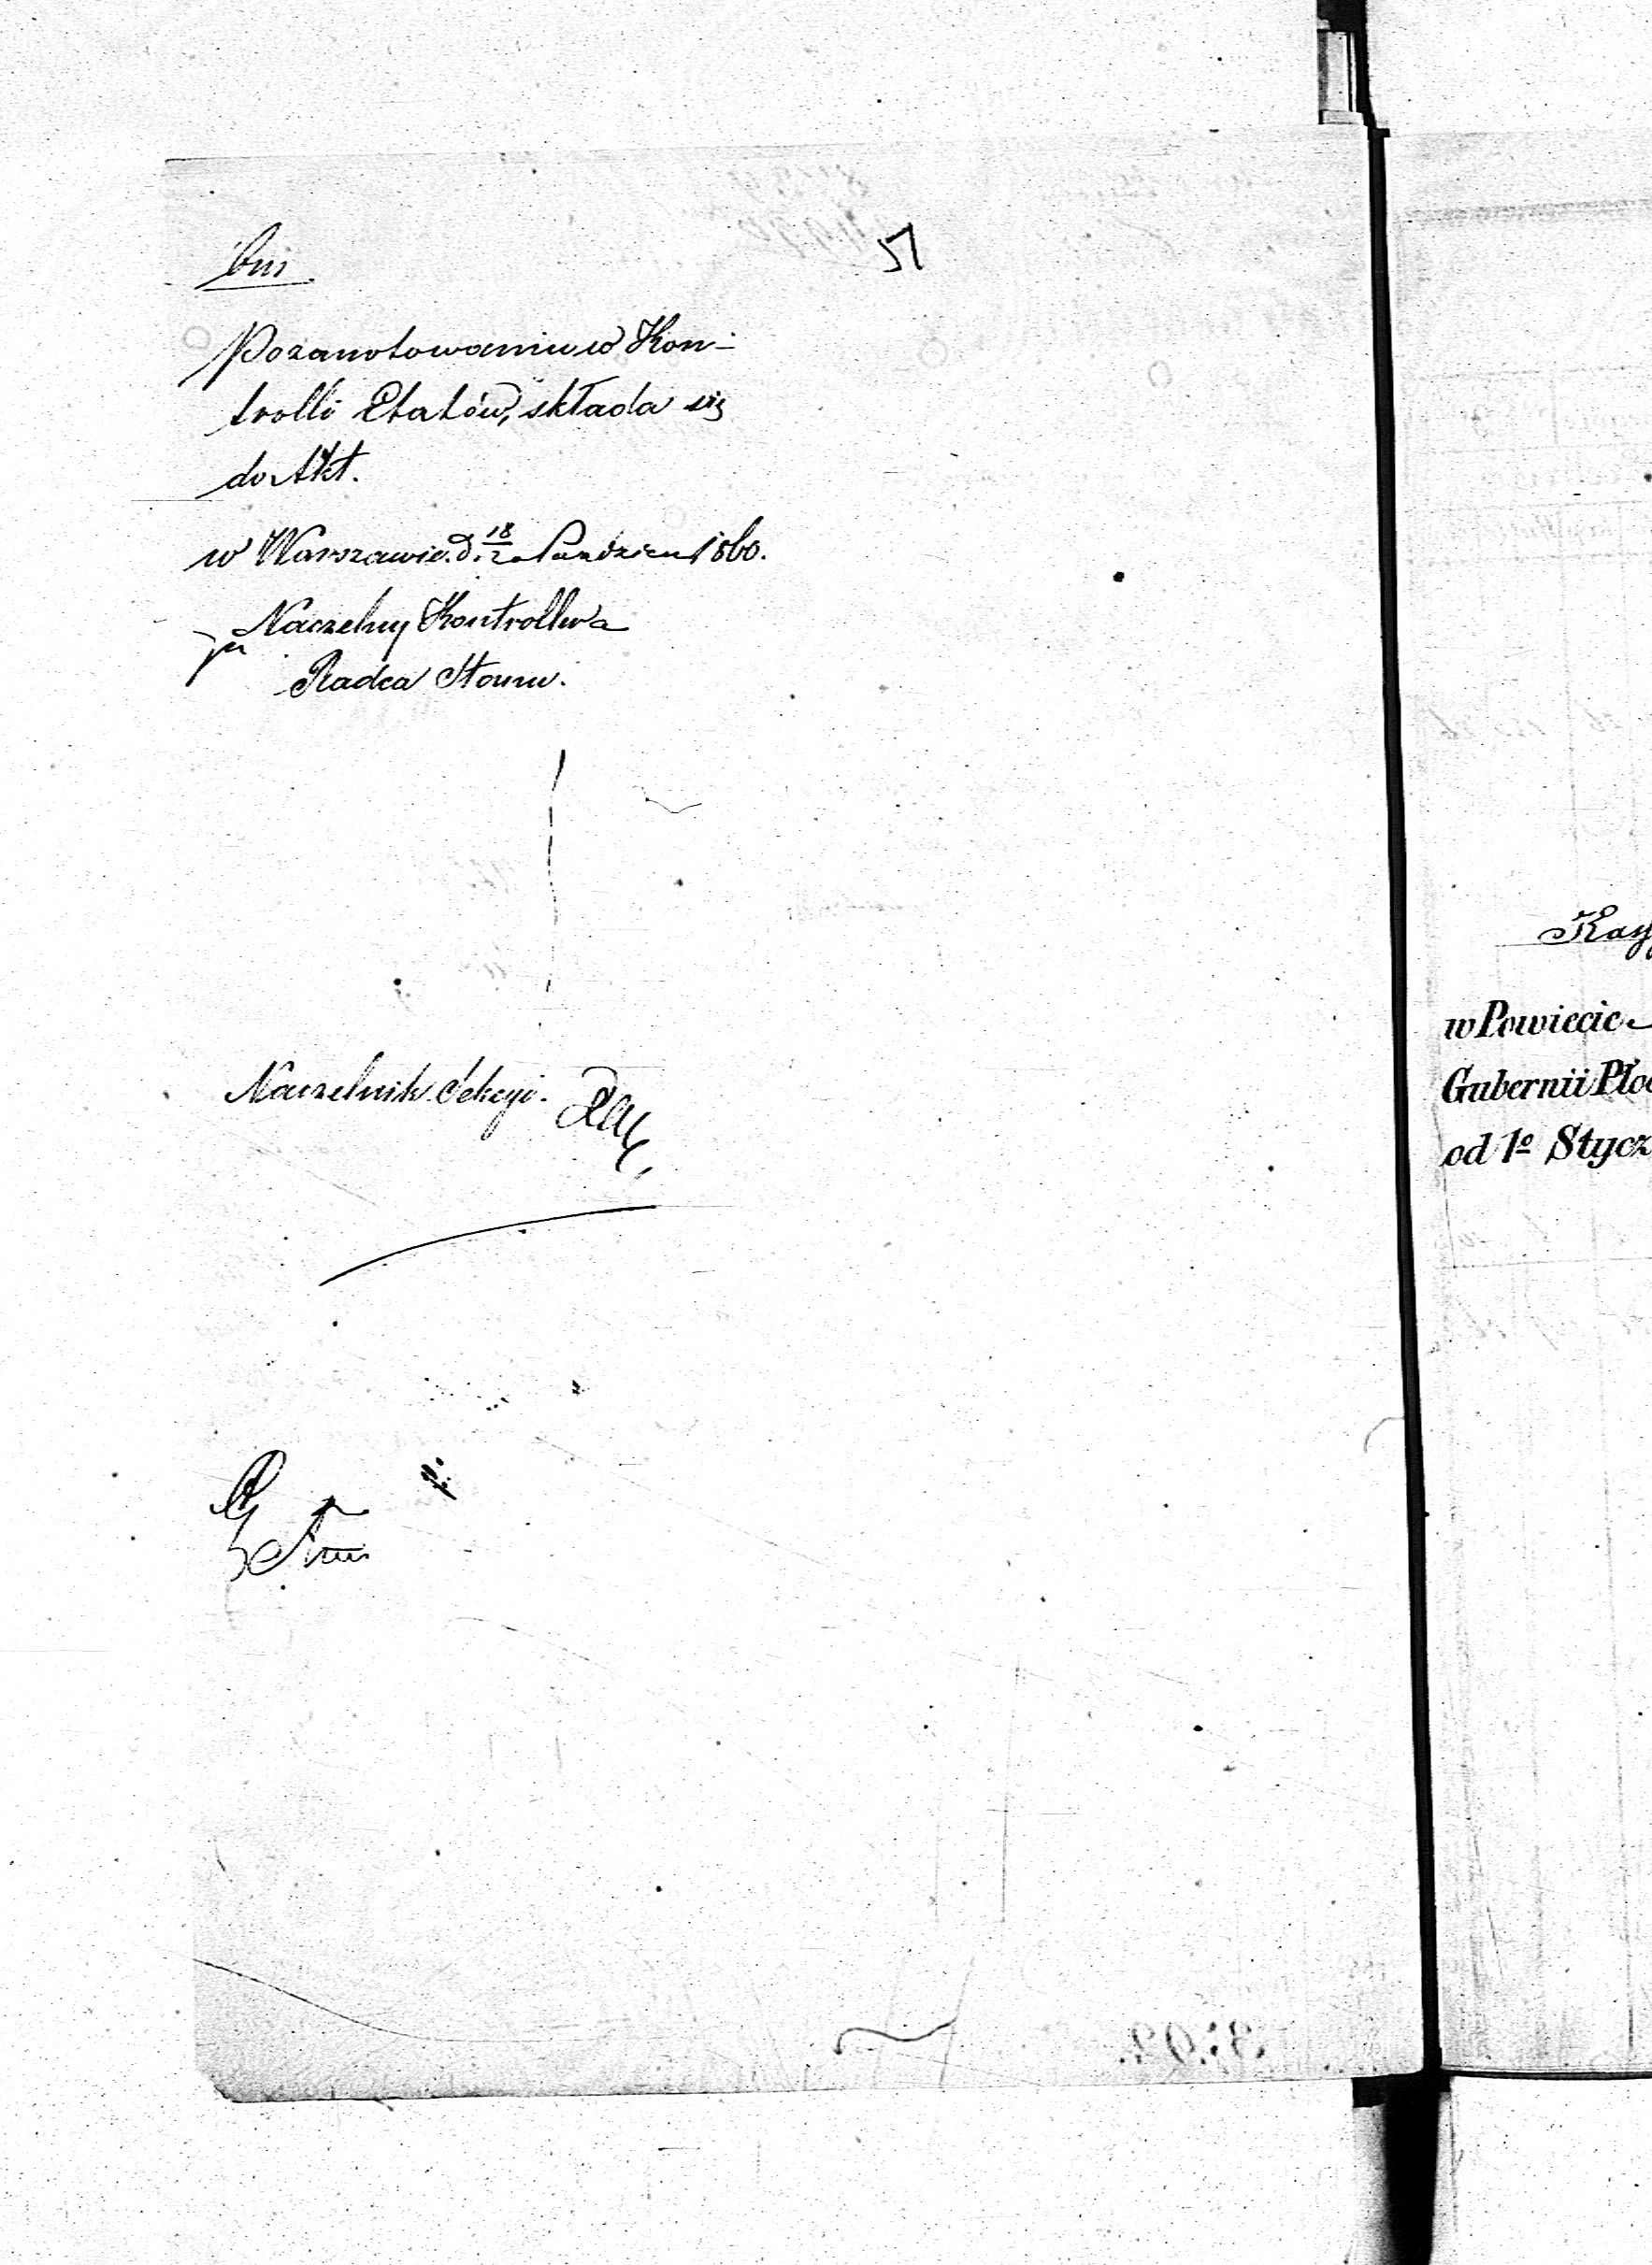 51
Po zanotowaniu w Kon-
trolli Etatów, składa się
do Akt.
w Warszawie d. 18/ Paździer 1860.
Naczelny Kontroller
Radca Stanu.
Naczelnik Sekcyi.
w Powiecie
Gubernii Płoc
od 1º Stycz